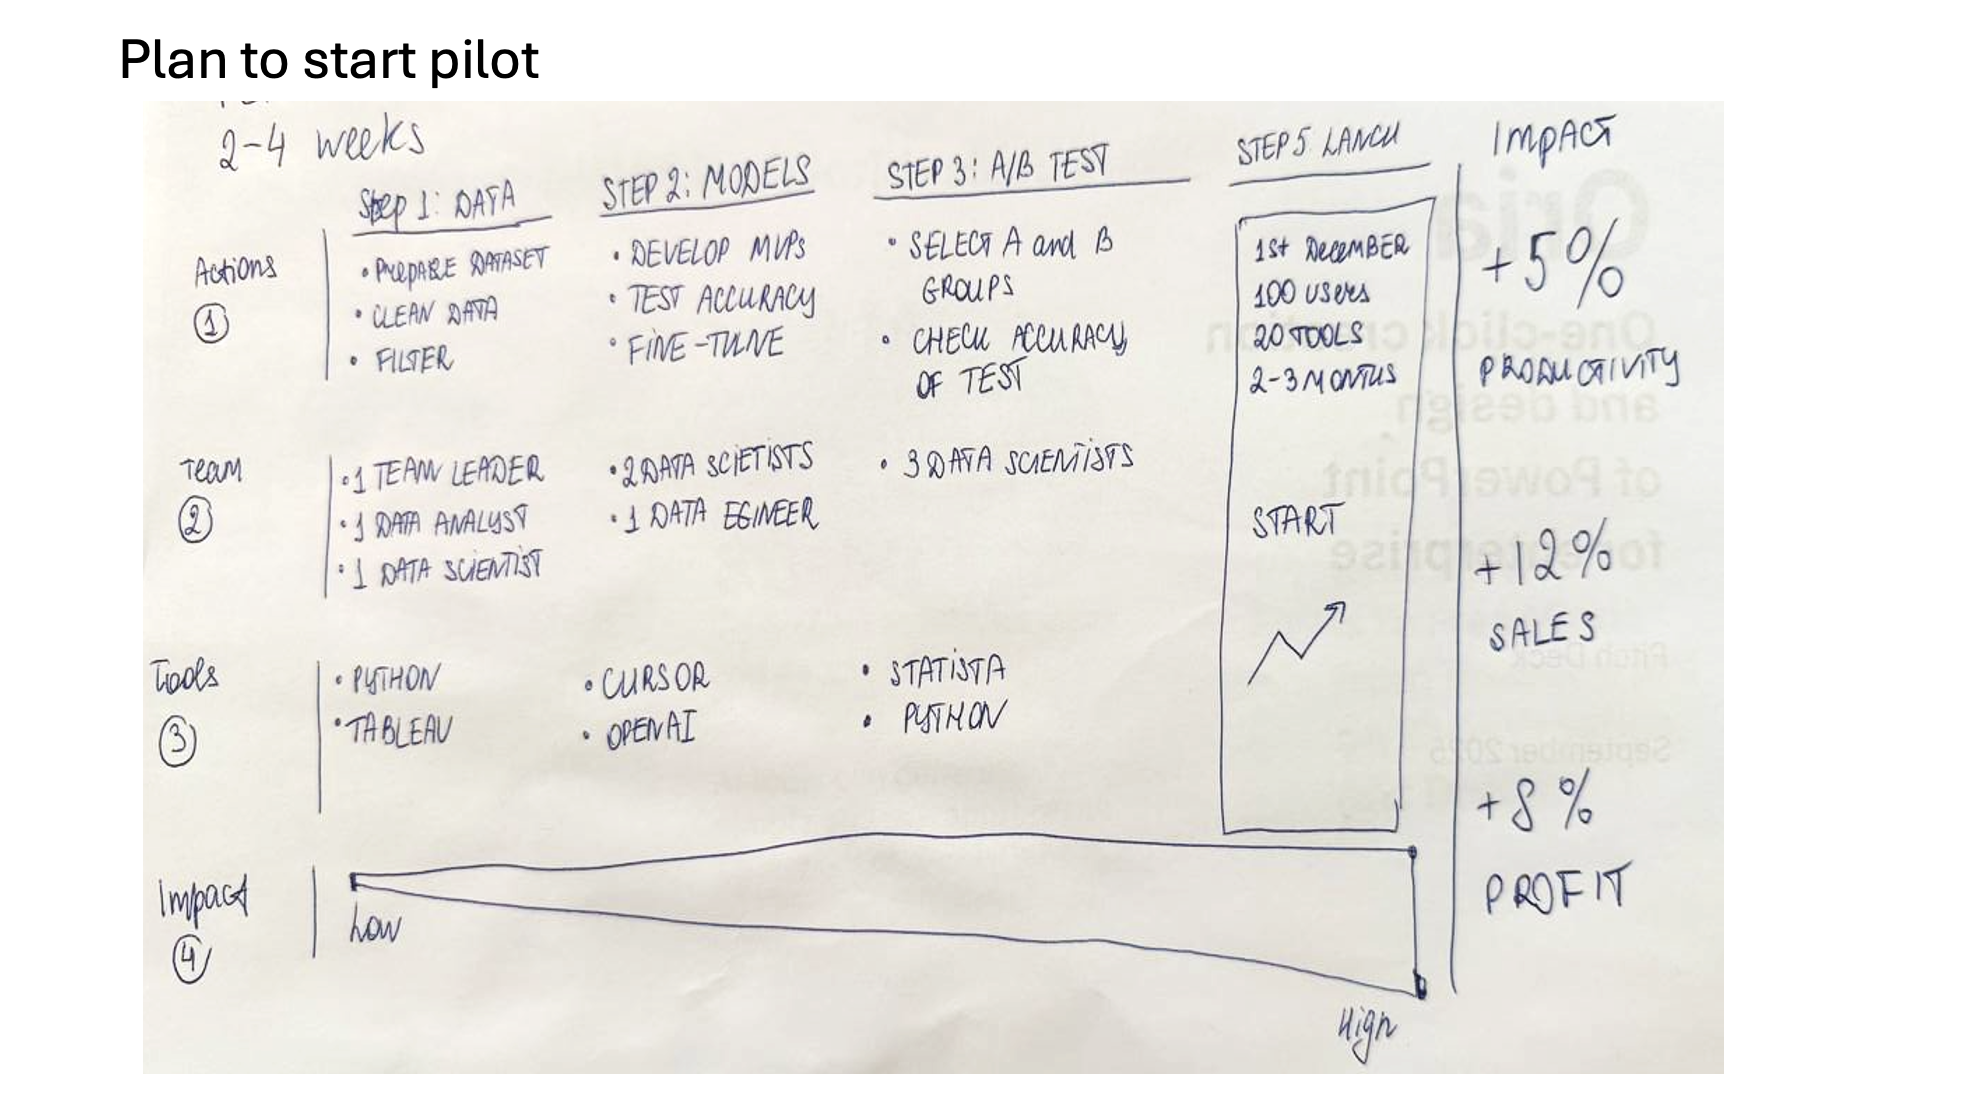 Plan to start pilot
2-4 weeks
Step 1: DATA
STEP 2: MODELS
STEP 3: A/B TEST
STEP 5 LANCH
IMPACT
Actions
1
• PREPARE DATASET
• CLEAN DATA
• FILTER
• DEVELOP MVPs
• TEST ACCURACY
• FINE-TUNE
• SELECT A and B
GROUPS
• CHECK ACCURACY
OF TEST
1st DECEMBER
100 users
20 TOOLS
2-3 MONTHS
START
+5%
PRODUCTIVITY
Team
2
• 1 TEAM LEADER
• 1 DATA ANALYST
• 1 DATA SCIENTIST
• 2 DATA SCIETISTS
• 1 DATA EGINEER
• 3 DATA SCIENTISTS
+12%
SALES
Tools
3
• PYTHON
• TABLEAU
• CURSOR
• OPENAI
• STATISTA
• PYTHON
+8%
PROFIT
Impact
4
Low
High
One-click creation
and design
of PowerPoint
for enterprise
Pitch Deck
September 2025